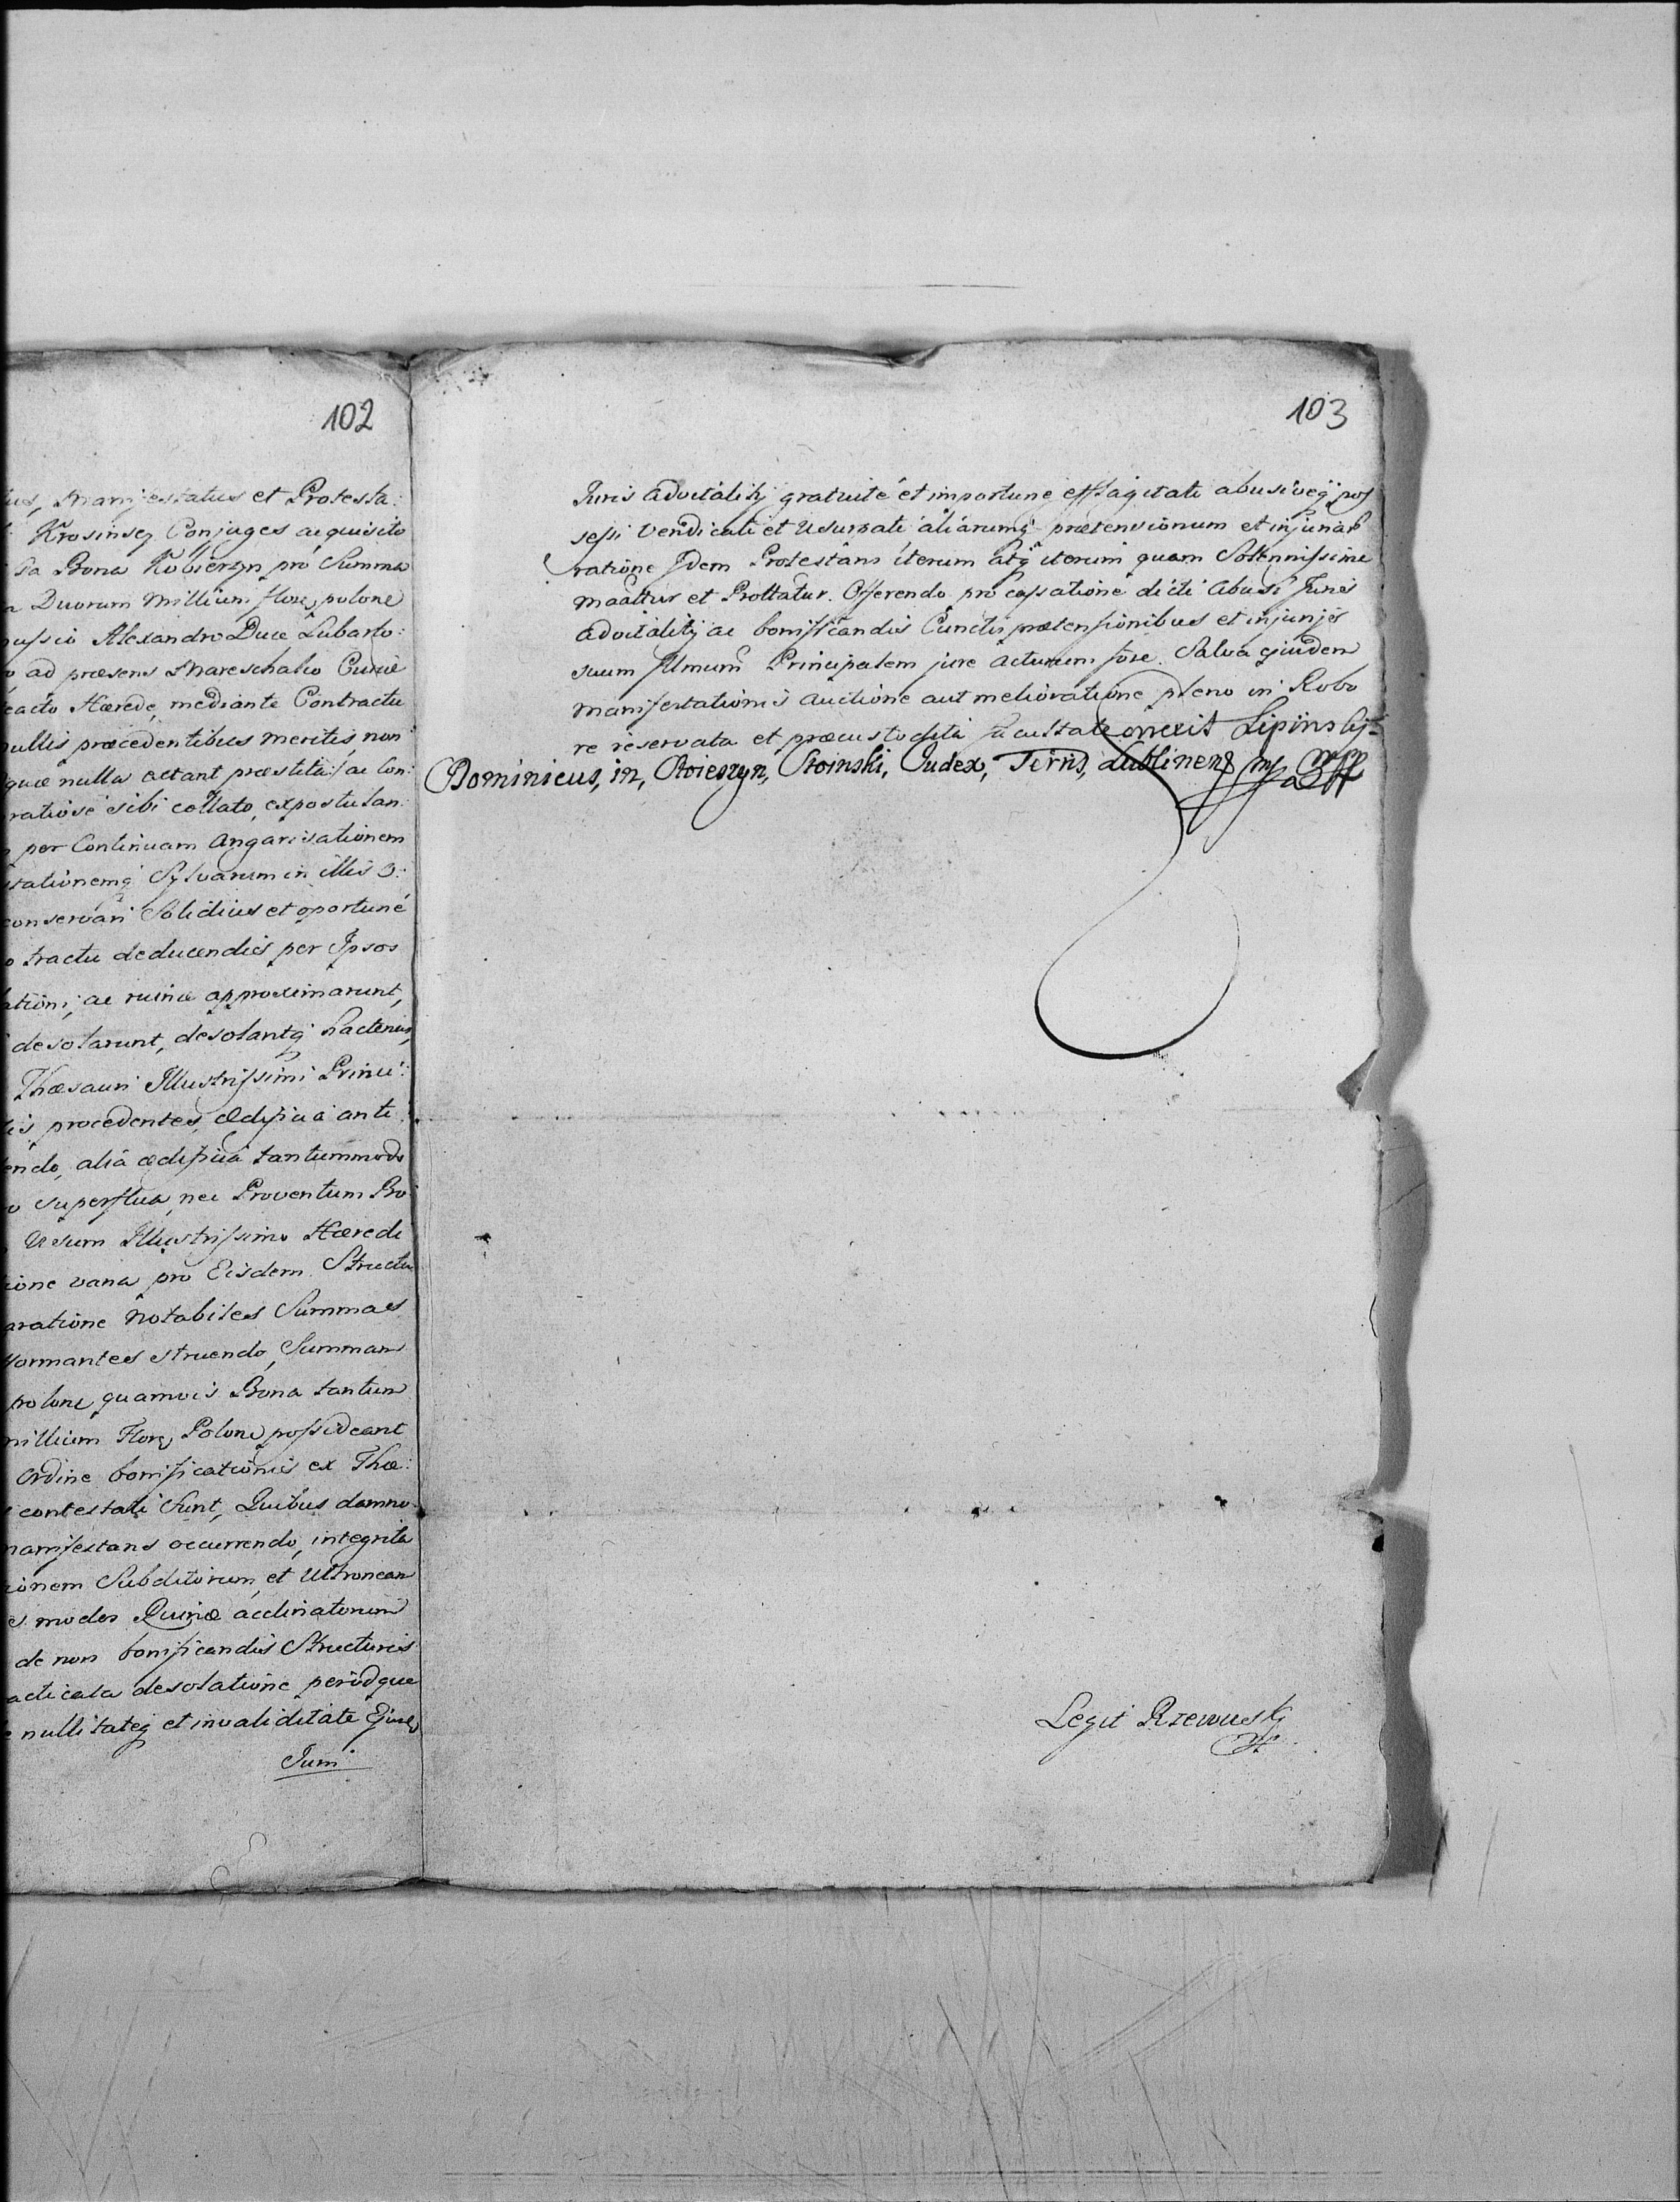 102
us, Manifestatus et Protesta:
Krosinscy Conjuges acquisito
da Bona Kobierzyn pro Summa
Duorum Millium flore polone
Alexandro Duce Lubarto:
ad præsens Mareschalco Curiæ
Hærede, mediante Contractu
nullis præcedentibus meritis, non
quæ nulla præstita ac Con:
ratiose sibi collato, expostulan:
per Continuam angarisationem
Sylvarum in illis
conservari Solidius et oportuné
tractu deducendis per Ipsos
ac ruinæ approximarunt,
desolarunt, desolantq hactenus,
Thæsauri Illustrissimi Princi:
procedentes, ædificia anti
endo, alia ædificia tantummodo
superflua, nec Proventum Bo
Usum Illustrissimo Hæredi
ione vana pro Eisdem Structu
aratione notabiles Summas
formantes struendo, Summam
polone, quamvis Bona tantum
millium Flore Polone possideant
Ordine bonificationis ex Thæ:
contestati Sunt, Quibus damno
manifestans occurrendo, integrita
ionem Subditorum, et Ultroneam
modos Ruinæ acclinatorum
de non bonificandis Structuris
acticata desolatione perindque
nullitateq et invaliditate Ejusd
Juris
103
Juris advitalitij gratuité et importune efflagitati abusiveq pos
sessi Vendicati et Usurpati aliarumq prætensionum et injuriar
ratione Idem Protestans iterum atq iterum quam Sollennissime
maattur et Prottatur. Offerendo pro cassatione dicti abusi Juris
advitalitij ac bonificandis Cunctis prætensionibus et injurijs
suum Illmum Principalem jure acturum fore. Salva ejusdem
manifestationis auctione aut melioratione pleno in Robo
re reservata et præcustodita facultate Correxit Lipinskij
Dominicus, in, Stoieszyn, Stoinski, Judex, Terris, Lublinens mp
Legit Rzewuskj